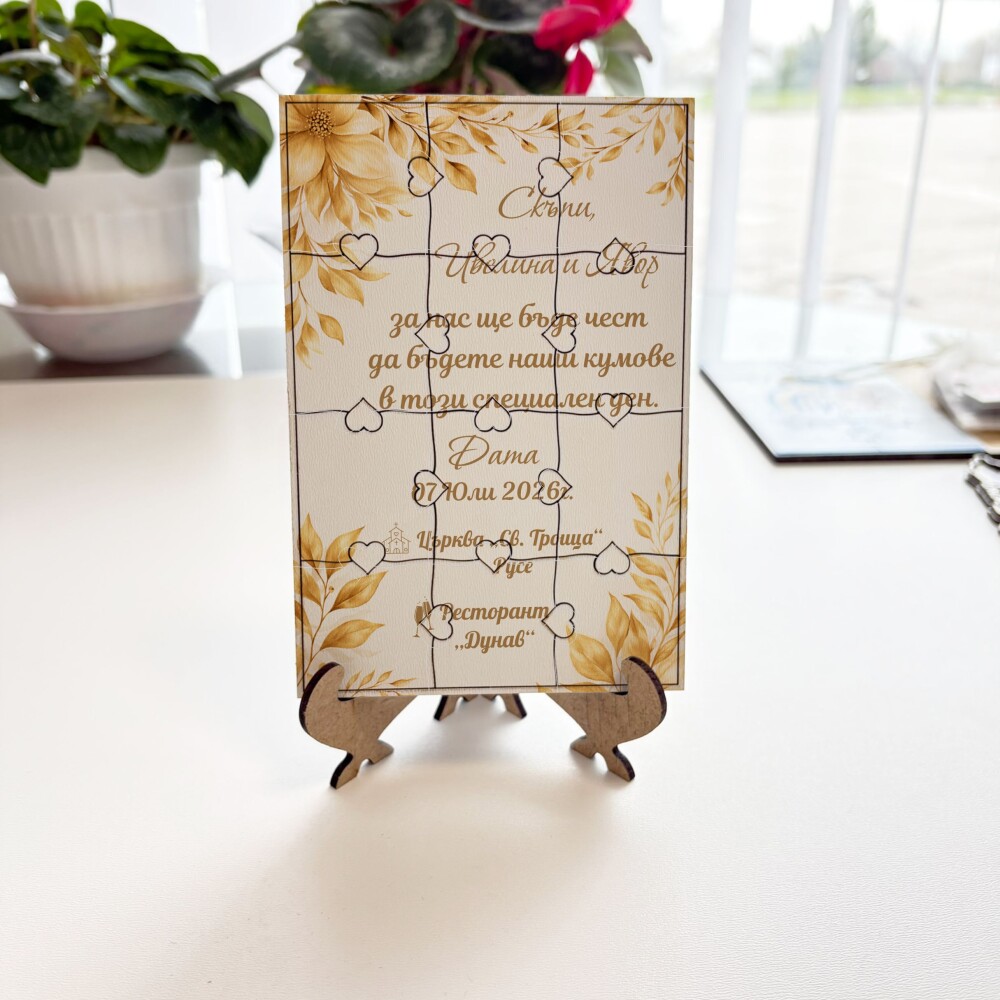 Скъпи,
Ивелина и Явор
за нас ще бъде чест
да бъдете наши кумове
в този специален ден.
Дата
07 Юли 2026г.
Църква „Св. Троица“
Русе
Ресторант
„Дунав“